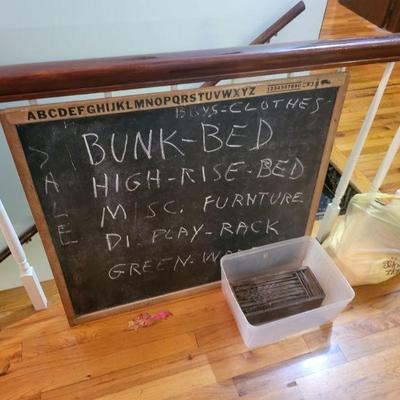 ABCDEFGHIJKLMNOPQRSTUVWXYZ 1234567890
BOYS-CLOTHES
SALE
BUNK-BED
HIGH-RISE-BED
MISC. FURNTURE
DISPLAY-RACK